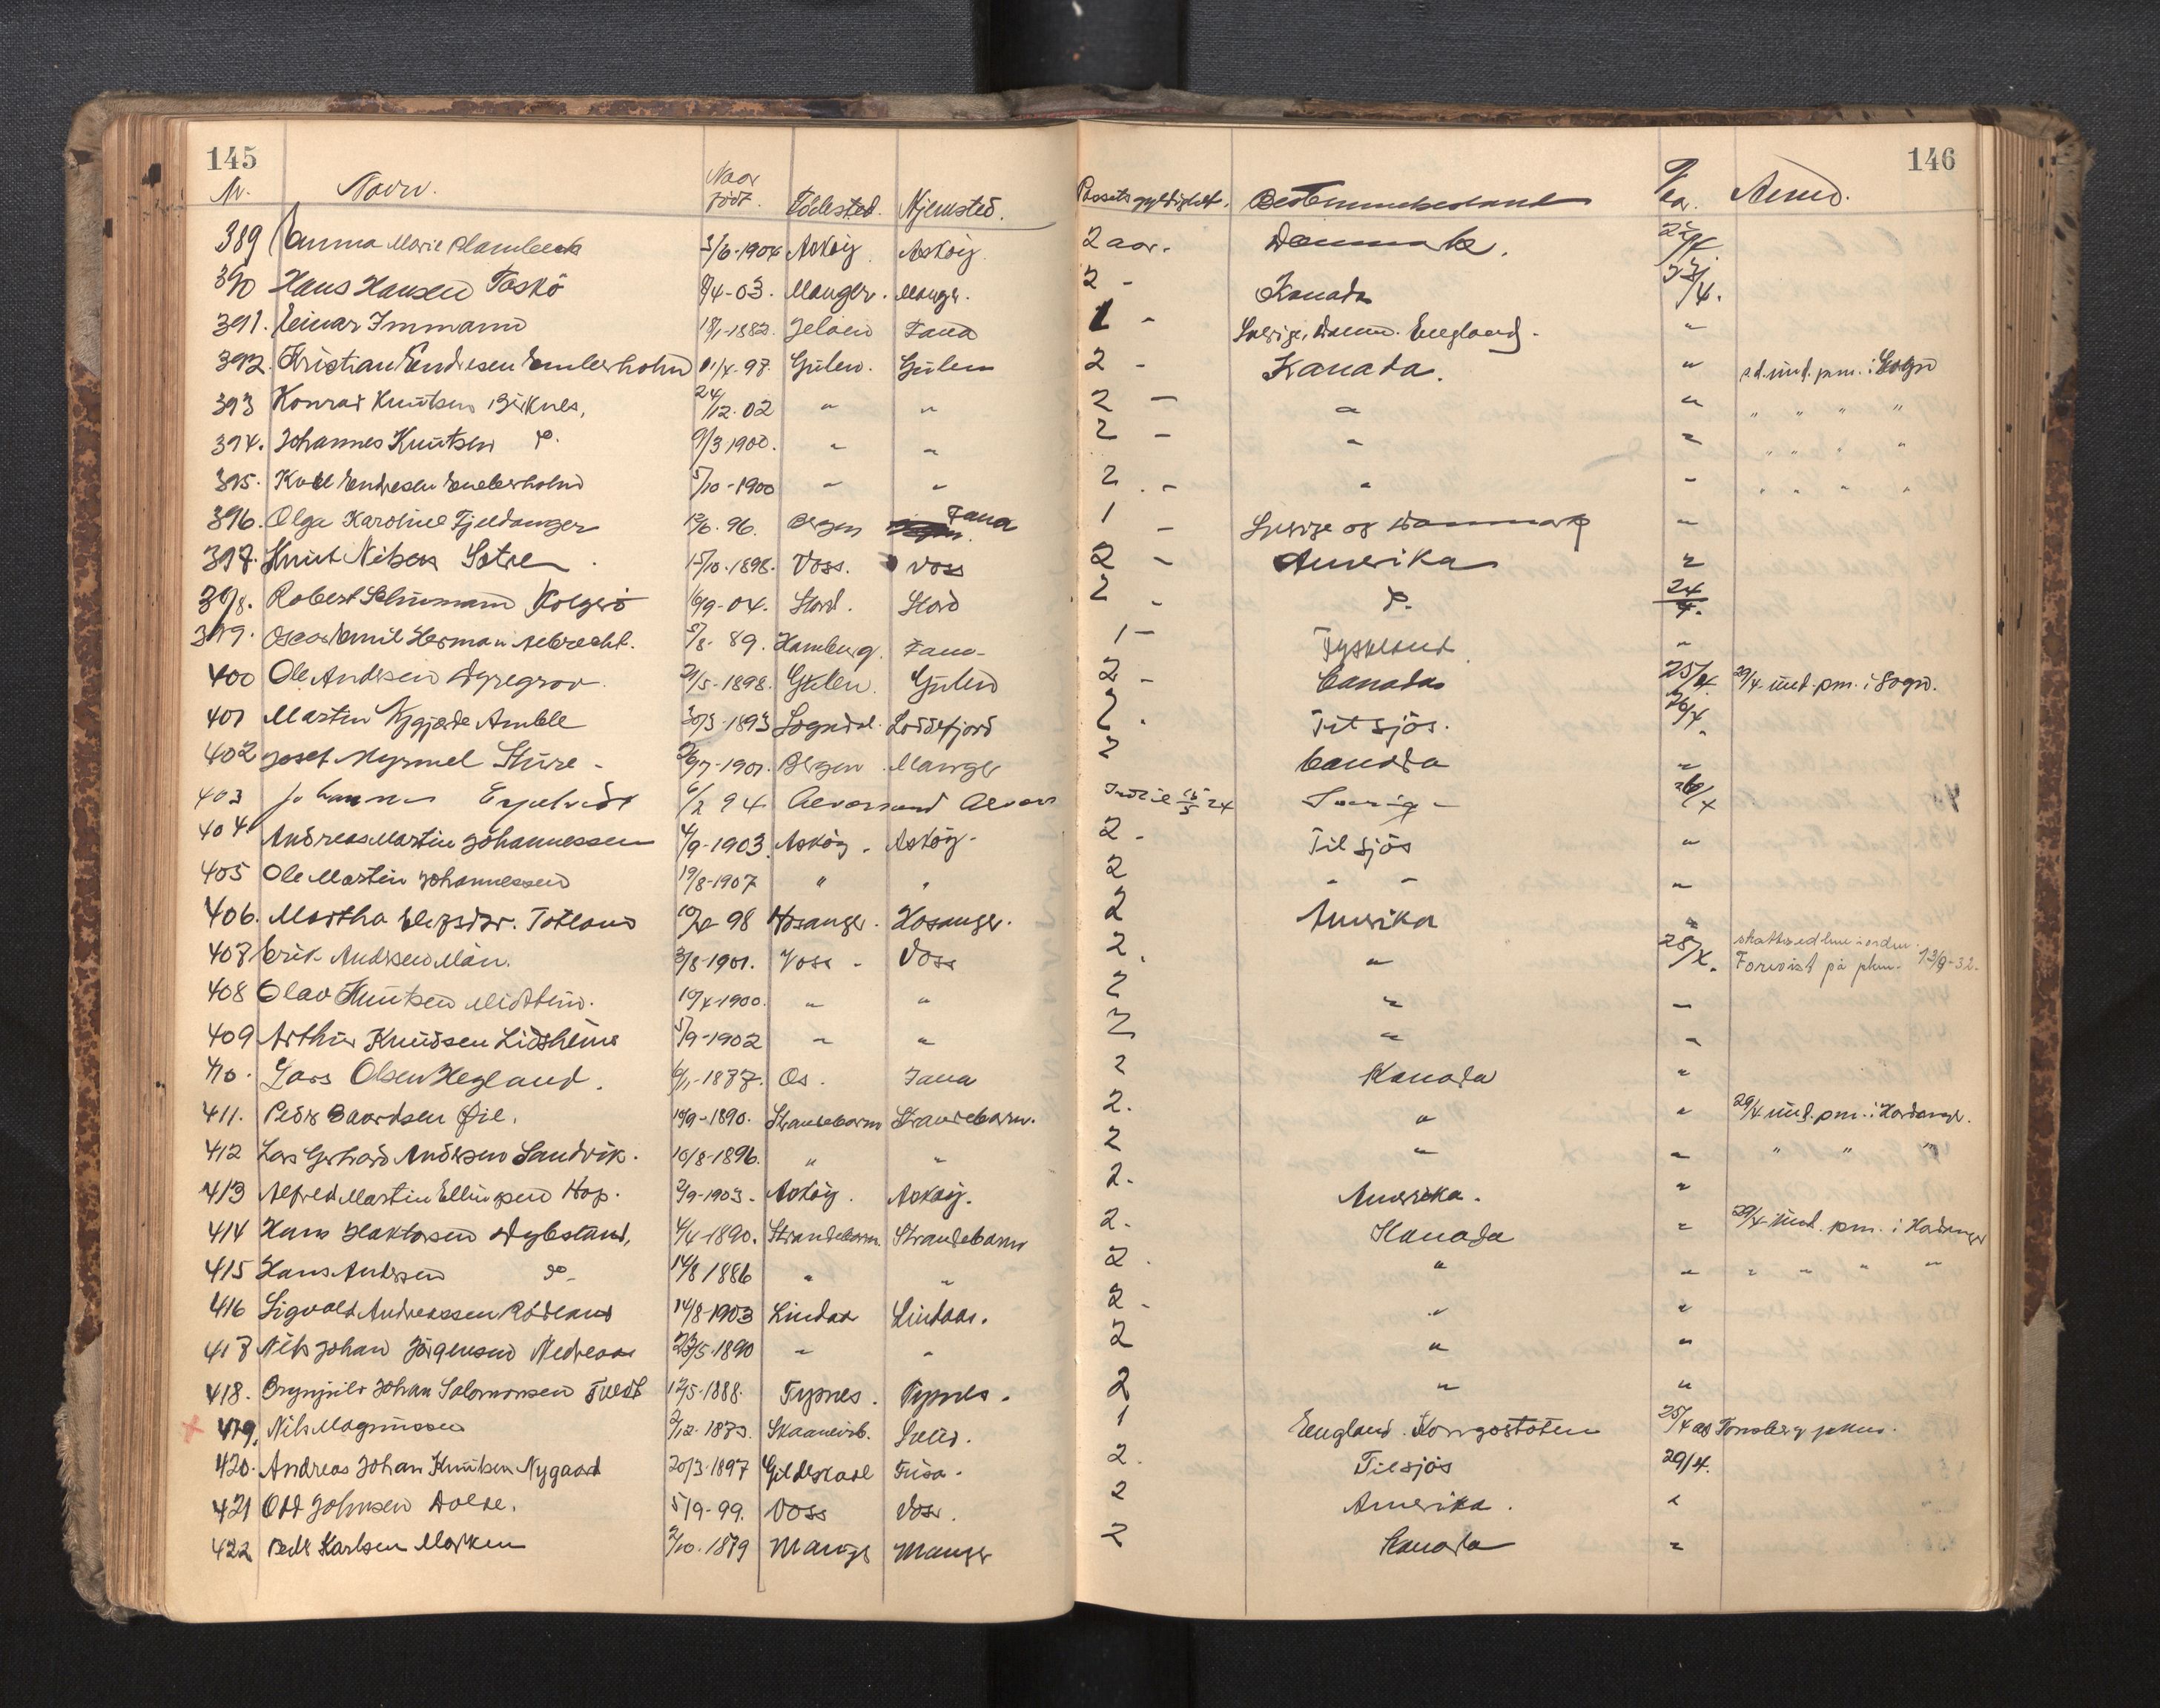 145
146
Nr. Navn. Naar født. Födested. Hjemsted. Passets gyldighet. Bestemmelsesland Anm.
389 Anna Marie Plambeck 3/6-1904 Askøy. Askøy. 2 aar. Danmark.
390 Hans Hansen Toskø /4-03. Manger. Mangr. 2 - Kanada 23/4.
391. Einar Immann 18/1-1882. Fana 1 - Sverige, Danm. England. "
392. Kristian Endresen 01/4-97. Gulen. Gulen 2 - Kanada. " und. pm. i Sogn
393 Konrad Knutsen Birknes, 24/12-02 " " 2 - " " " " " "
394. Johannes Knutsen do. 9/3 1900. " " 2 - " " " " " "
395. Endresen 5/10-1900 " " 2 - " " " " " "
396. Olga Karoline Fjeldanger 96. Bergen Fana 1 - Sverige og Danmark "
397. Knut Nilsen Sætre 15/10-1898. Voss. Voss 2 - Amerika "
398. Robert Schumann 16/9-04. Stord. Stord 2 - do. 24/4.
399. Oscar Emil Herman Albrecht. /8-89. Hamburg. Fana 1 - Tyskland "
400 Ole Andersen Dyregrov 21/5-1898. Gulen. Gulen 2 - Canada 25/4. 29/4 und. pm. i Sogn.
401 Martin Amble 30/3-1893 Sogndal. Loddefjord 2. Til sjøs. 26/4.
402 Josef Myrmel Sture - -1901. Bergen Manger 2 Canada "
403 Johannes 6/2 94 Alversund 24 Sverige 26/4
404 Andreas Martin Johannessen 4/9-1903. Askøy. Askøy. 2 - Til sjøs "
405 Ole Martin Johannessen 19/8-1907 " " 2 " " "
406. Martha Totland 98 Hosanger. Hosanger. 2 Amerika "
407 Erik Andersen Møn. 3/8-1901. Voss - Voss 2. " 28/4. skatteseddelen i orden. Forevist på pkm. 13/9-32.
408 Olav Knutsen Midttun. 10/4-1900. " " 2 " "
409 Arthur Knudsen Lidsheim 5/9-1902 " " 2 " "
410. Lars Olsen Hegland. 6/11-1877. Os. Fana 2 Kanada "
411. Peder Baardsen Øie. 10/9-1890. Strandebarm Strandebarm. 2. " " 29/4 und. pm. i Hardanger.
412 Lars Gerhard Andersen Sandvik. 10/8-1896. " " 2 " " " " "
413 Alfred Martin Ellingsen Hop. 2/9-1903. Askøy. Askøy. 2. Amerika. "
414 Hans Haktorsen Dybsland, 4/4-1890. Strandebarm. Strandebarm 2. Kanada " 29/4 und. pm. i Hardanger
415 Hans Andersen do. 14/8 1886 " " 2. " " " " " "
416 Sigvald Andreassen Rødland 14/8-1903 Lindaas Lindaas. 2 - " "
417 Nils Johan Jørgensen Nedreaas 23/5-1890 " " 2 " "
418. Brynjulv Johan Salomonsen Tveit 12/5-1888. Fysnes. Fysnes. 2 " "
x 419. Nils Magnussen /12-1873. Skaanevik. 1 England. Kongostaten 25/4 Tønsberg pkm.
420. Andreas Johan Knutsen Nygaard 20/3-1897 Gildeskaal Fusa. 2. Til sjøs 29/4.
421 Odd Johnsen 5/9-99. Voss Voss. 2 Amerika. "
422 Karlsen Marken 2/10-1879 Manger Manger 2 Kanada "